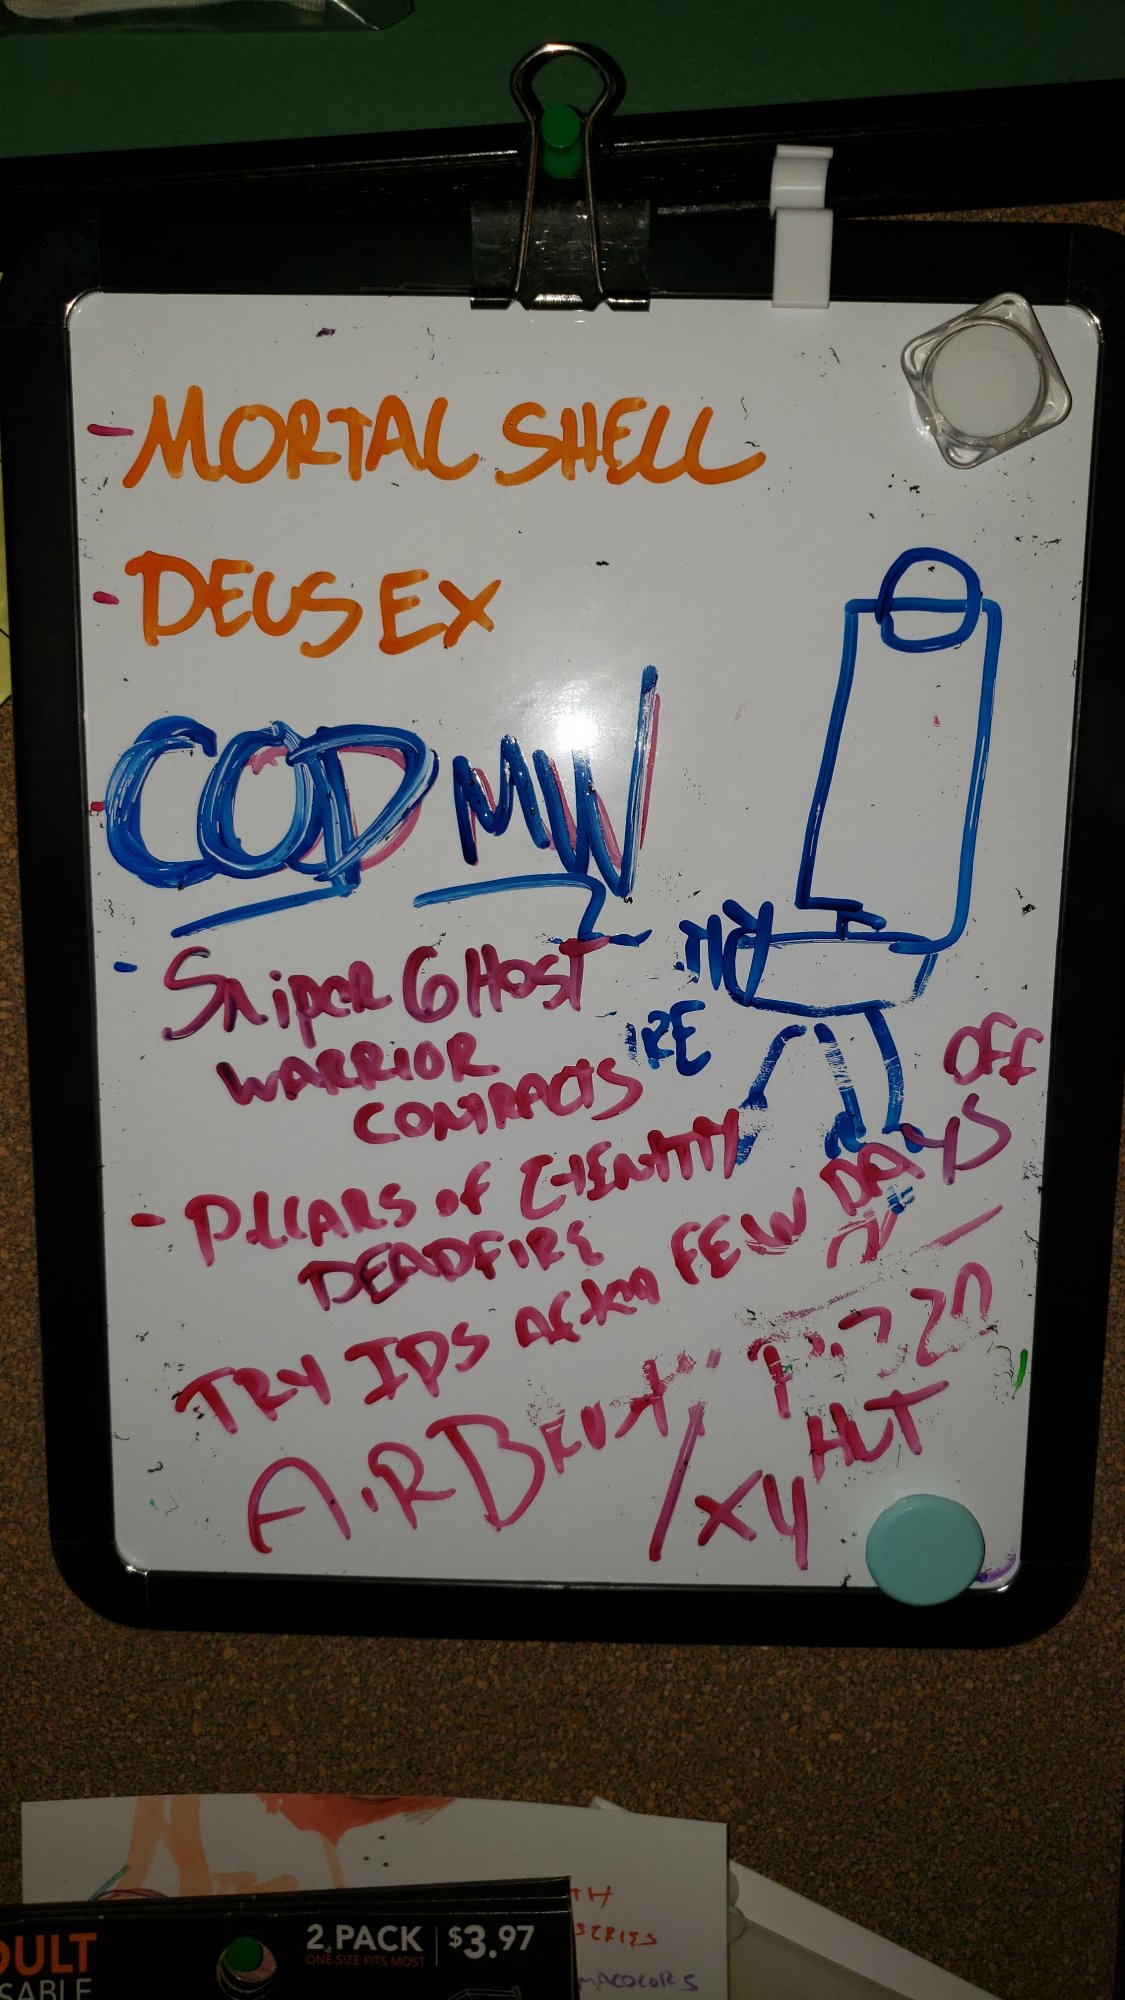 - MORTAL SHELL
- DEUS EX
- COD MW
- SNiPER GHOST
WARRIOR
CONTRACTS
RE
- PiLLARS OF ETERNITY
DEADFIRE
TRY IPS AFTER FEW DAYS OFF
AiRBRUSH
/XY
HUT
2 PACK $3.97
ONE SIZE FITS MOST
TH
SERIES